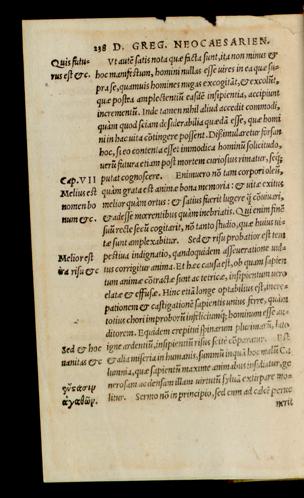 238 D. GREG. NEOCAESARIEN.
Quis futu-
rus est &c.
Vt autē satis nota quæ facta sunt, ita non minus &
hoc manifestum, homini nullas esse vires in ea quæ su-
pra se, quamuis homines nugas excogitāt, & excolūt,
quæ postea amplectentiū easdē insipientia, accipiunt
incrementū. Inde tamen nihil aliud accedit commodi,
quàm quod sciam desiderabilia quædā esse, quæ homi
ni in hac uita cōtingere possent. Dissimularetur forsan
hoc, si eo contenta esset immodica hominū solicitudo,
verū futura etiam post mortem curiosius rimatur, seq;
putat cognoscere.
Cap. VII
Melius est
nomen bo
num &c.
Enimuero nō tam corpori oleū,
quàm grata est animæ bona memoria: & vitæ exitus
melior quàm ortus: & satius fierit lugere q̄ cōuiuari,
& adesse mœrentibus quàm inebriatis. Qui enim finē
suū recte secū cogitarit, nō tanto studio, quæ huius ui-
tæ sunt amplexabitur.
Melior est
ira risu &c
Sed & risu probatior est tem
pestiua indignatio, quandoquidem asseueratione uul-
tus corrigitur anima. Et hæc causa est, ob quam sapien
tum animæ cōtractæ sunt ac tetricæ, insipientum uero
elatæ & effusæ. Hinc etiā longe optabilius est, increp-
pationem & castigationē sapientis unius ferre, quàm
totius chori improborū infeliciumq; hominum esse au-
ditorem. Equidem crepitui spinarum plurimarū, ita
igne ardentiū, insipientū risus scitè cōparatur.
Sed & hoc
uanitas &c
Est
& alia miseria in humanis, summū inquā hoc malū Ca
lumnia, quæ sapientum maxime animabus insidiatur, ge
nerosam ac densam illam uirtutū syluā extirpare mo-
litur.
Sermo nō in principio, sed cum ad calcē perue
nerit